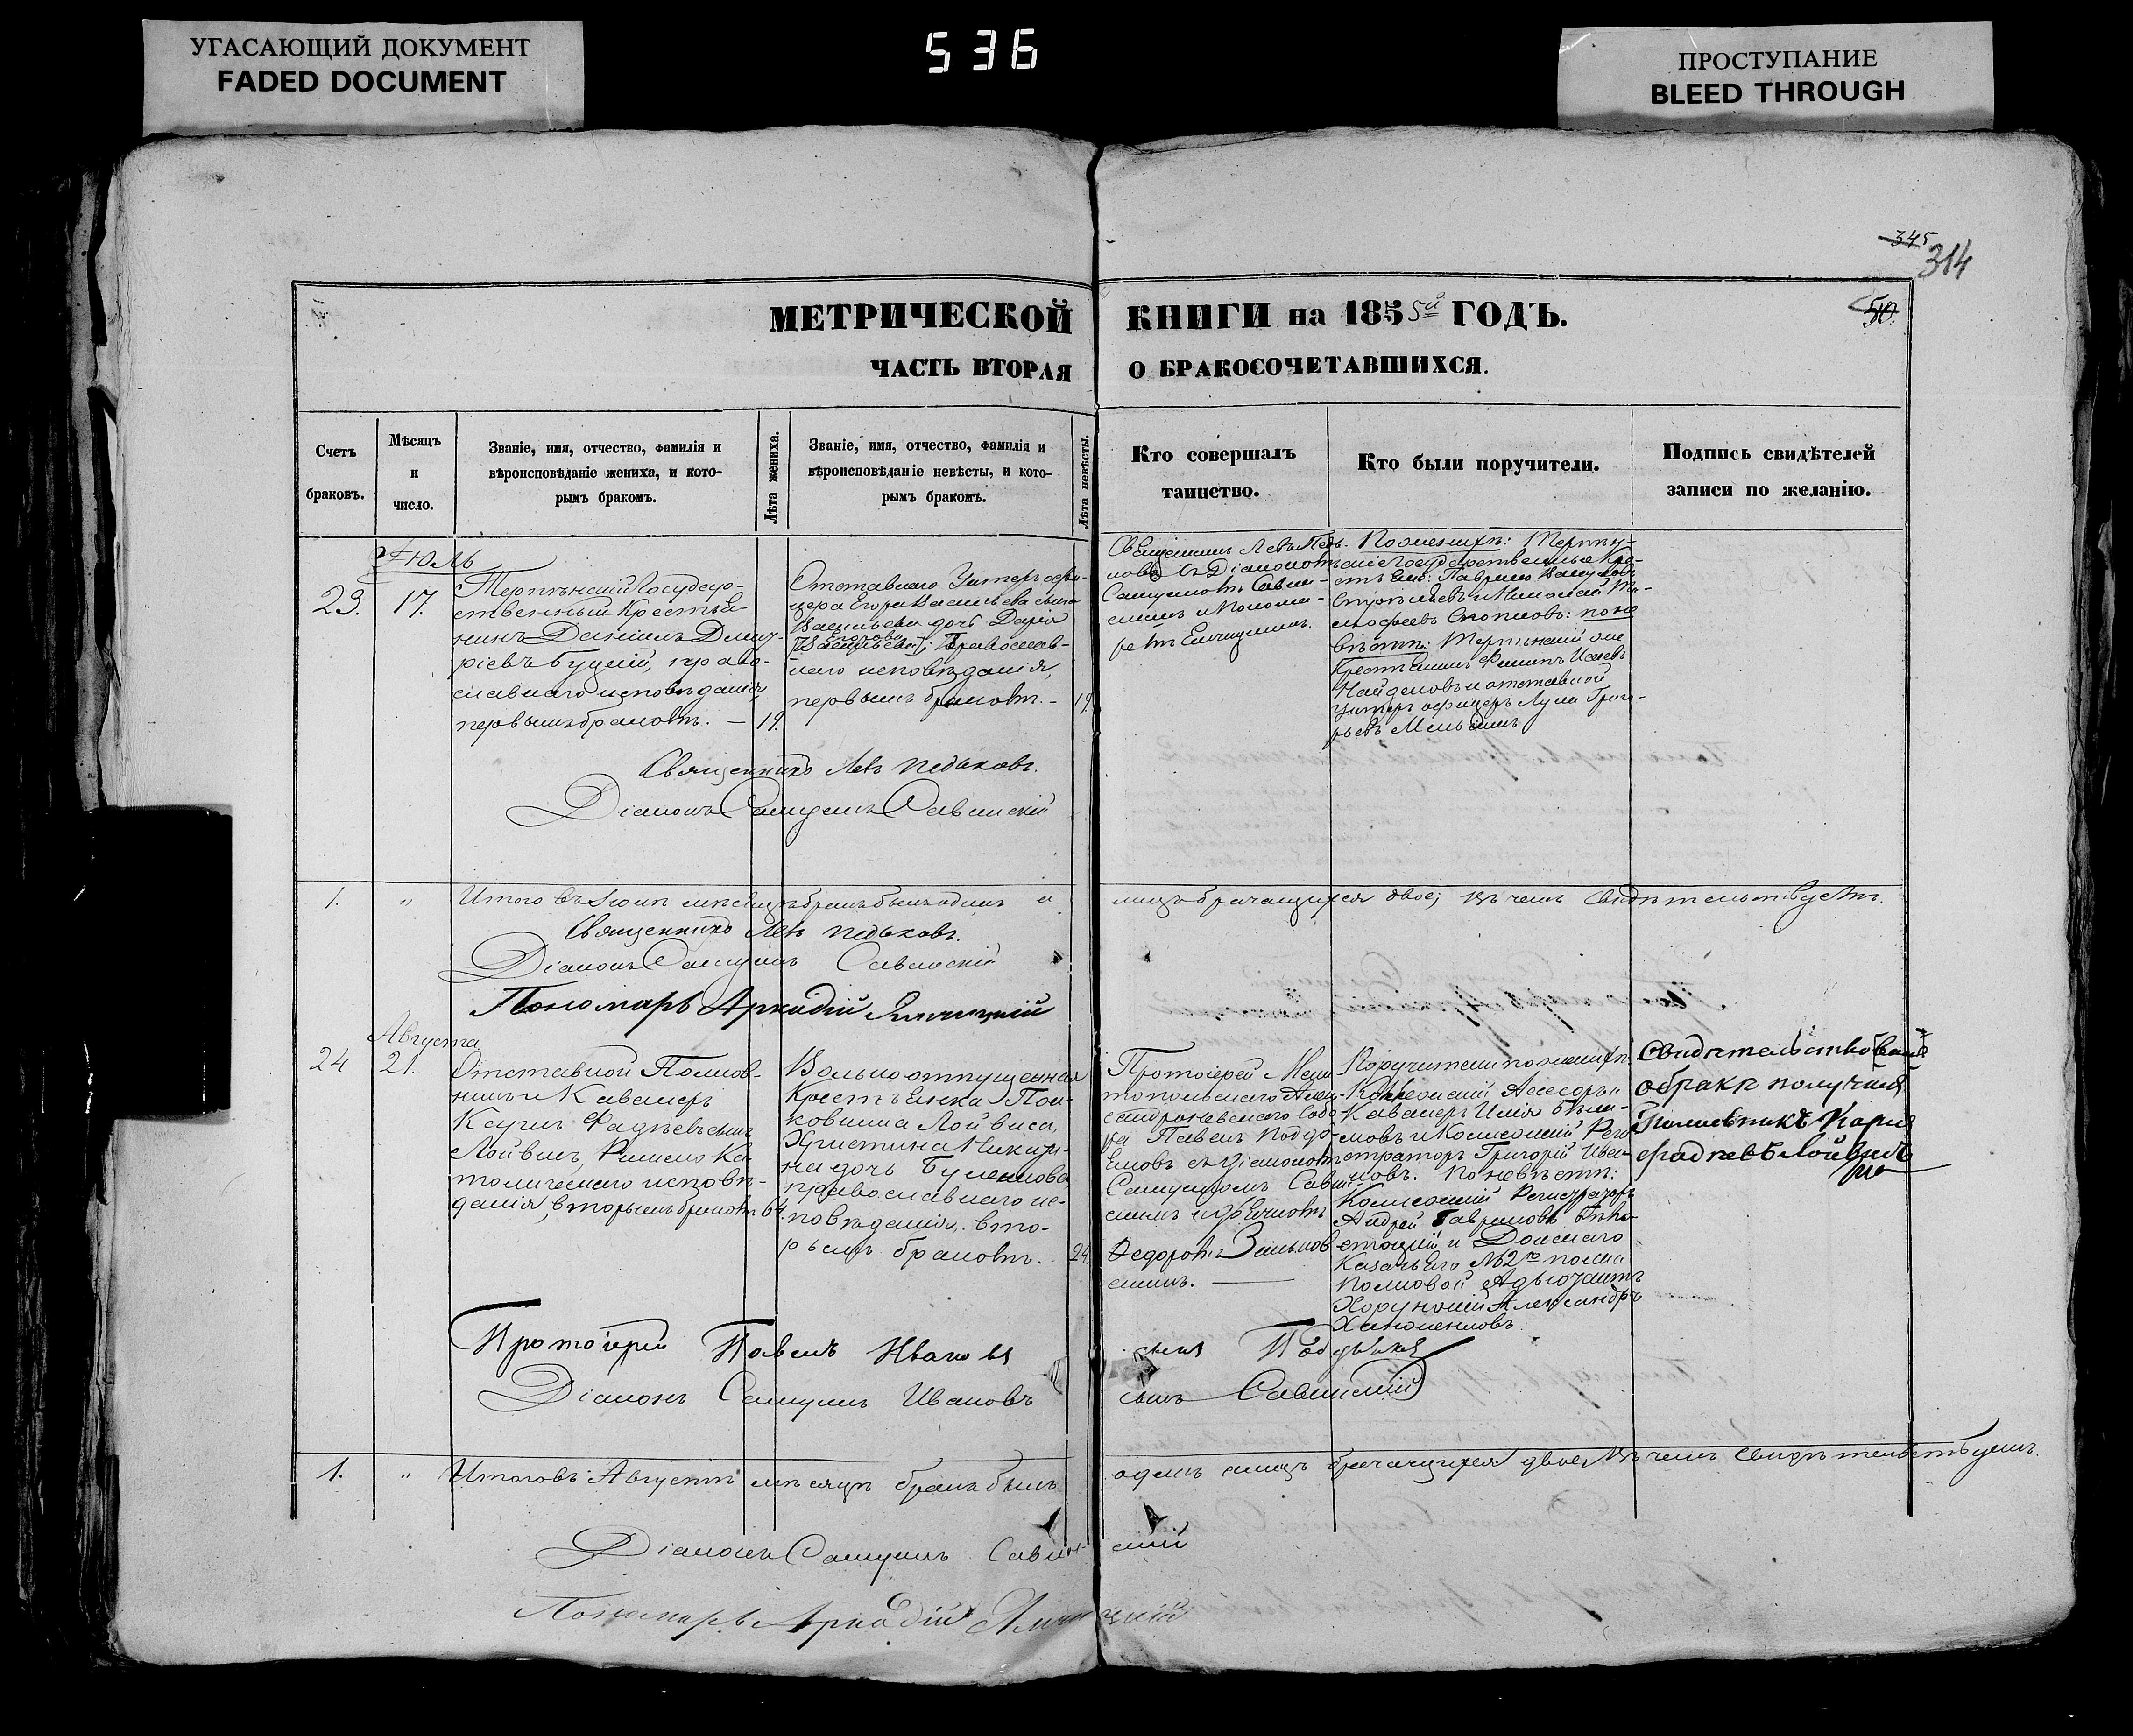 УГАСАЮЩИЙ ДОКУМЕНТ
FADED DOCUMENT
536
ПРОСТУПАНИЕ
BLEED THROUGH
345
314
50.
МЕТРИЧЕСКОЙ КНИГИ на 1855й ГОДЪ.
ЧАСТЬ ВТОРАЯ О БРАКОСОЧЕТАВШИХСЯ.
Счетъ
браковъ.
Мѣсяцъ
и
число.
Званіе, имя, отчество, фамилія и
вѣроисповѣданіе жениха, и кото-
рымъ бракомъ.
Лѣта жениха.
Званіе, имя, отчество, фамилія и
вѣроисповѣданіе невѣсты, и кото-
рымъ бракомъ.
Лѣта невѣсты.
Кто совершалъ
таинство.
Кто были поручители.
Подпись свидѣтелей
записи по желанію.
Июль
23.
17.
Терпѣнскій Государ-
ственный Крестья-
нинъ Даніилъ Дмит-
ріевъ Буцкій, право-
славнаго исповѣданія,
первымъ бракомъ. —
19.
Отставнаго Унтеръ офи-
цера Егора Васильева сына
Васильева дочь Дарія
Егорова
[Васильева]; Православ-
наго исповѣданія,
первымъ бракомъ. —
19.
Священникъ Левъ Педь-
ковъ съ Діакономъ
Самуиломъ Савин-
скимъ и Понома-
ремъ
По женихѣ: Терпѣн-
скіе Государственные Кре-
стьяне: Гаврилъ
и Николай Ти-
мофеевъ по не
вѣстѣ: Терпѣнскій же
Крестьянинъ Филипъ Исаевъ
Найденовъ и отставной
Унтеръ офицеръ Лука Григо-
рьевъ
Священникъ Левъ Педьковъ.
Діаконъ Самуилъ Савинскій
1.
"
Итого въ Іюлѣ мѣсяцѣ бракъ былъ одинъ а
лицъ брачащихся двое; въ чемъ свидѣтельствуемъ.
Священникъ Левъ Педьковъ.
Діаконъ Самуилъ Савинскій
Пономарь Аркадій
Августа
24
21.
Отставной Полков-
никъ и Кавалеръ
Карлъ Фадѣевъ сынъ
Лойвисъ, Римско Ка-
толическаго исповѣ-
данія, вторымъ бракомъ
64.
Вольноотпущенная
Крестьянка Пол-
ковника Лойвиса,
Христина Никити-
на дочь
православнаго ис-
повѣданія, вто-
рымъ бракомъ.
24.
Протоіерей Мели
топольскаго Алек-
сандроневскаго Собо-
ра Павелъ Поддь-
яковъ съ Діакономъ
Самуиломъ Савин-
скимъ и дьячкомъ
Федоромъ Зеньков
скимъ. —
Поручители по женихѣ:
Коллежскій Ассесоръ и
Кавалеръ Илія
и Колежскій Реги
страторъ Григорій Иван-
овъ. По невѣстѣ:
Колежскій Регистраторъ
Андрей Гавриловъ
и Донскаго
Казачьяго №2го полка
полковой Адъютантъ
Хорунжій Александръ
Свидѣтельство
о бракѣ получилъ
Полковникъ Карлъ
Фадѣевъ Лойвисъ
Протоіерей Павелъ Ивановъ сынъ Поддьяковъ
Діаконъ Самуилъ Ивановъ сынъ Савинскій
1.
"
Итого въ Августѣ мѣсяцѣ бракъ былъ
одинъ а лицъ брачащихся двое, въ чемъ свидѣтельствуемъ.
Діаконъ Самуилъ Савинскій
Пономарь Аркадій